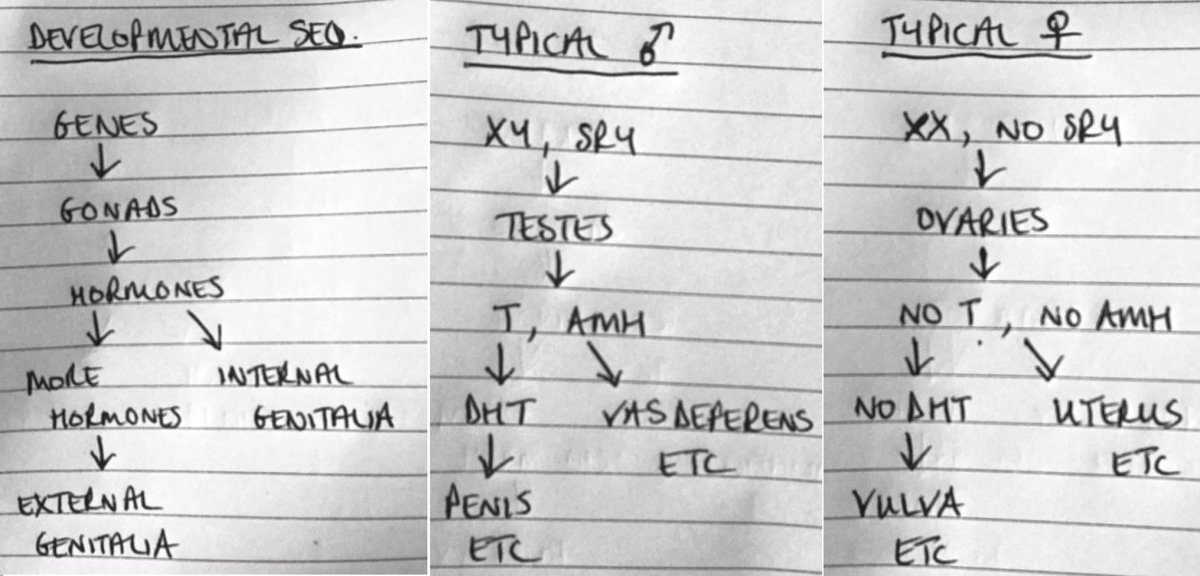 DEVELOPMENTAL SEQ.
GENES
↓
GONADS
↓
HORMONES
↓ ↘
MORE INTERNAL
HORMONES GENITALIA
↓
EXTERNAL
GENITALIA
TYPICAL ♂
XY, SRY
↓
TESTES
↓
T, AMH
↓ ↘
DHT VAS DEFERENS
↓ ETC
PENIS
ETC
TYPICAL ♀
XX, NO SRY
↓
OVARIES
↓
NO T, NO AMH
↓ ↘
NO DHT UTERUS
↓ ETC
VULVA
ETC